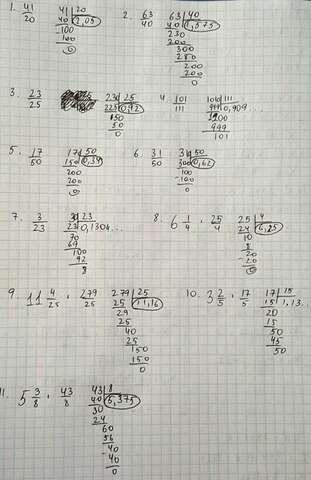 1. 41/20 41 | 20
40 | 2,05
100
100
0
2. 63/40 63 | 40
40 | 1,575
230
200
300
280
200
200
0
3. 23/25 230 | 25
225 | 0,92
50
50
0
4. 101/111 1010 | 111
999 | 0,909...
1100
999
101
5. 17/50 170 | 50
150 | 0,34
200
200
0
6. 31/50 310 | 50
300 | 0,62
100
-100
0
7. 3/23 30 | 23
23 | 0,1304...
70
69
100
92
8
8. 6 1/4 = 25/4 25 | 4
24 | 6,25
10
8
20
-20
0
9. 11 4/25 = 279/25 279 | 25
25 | 11,16
29
25
40
25
150
150
0
10. 3 2/5 = 17/5 17 | 15
15 | 1,13...
20
15
50
45
50
11. 5 3/8 = 43/8 43 | 8
40 | 5,375
30
24
60
56
40
40
0